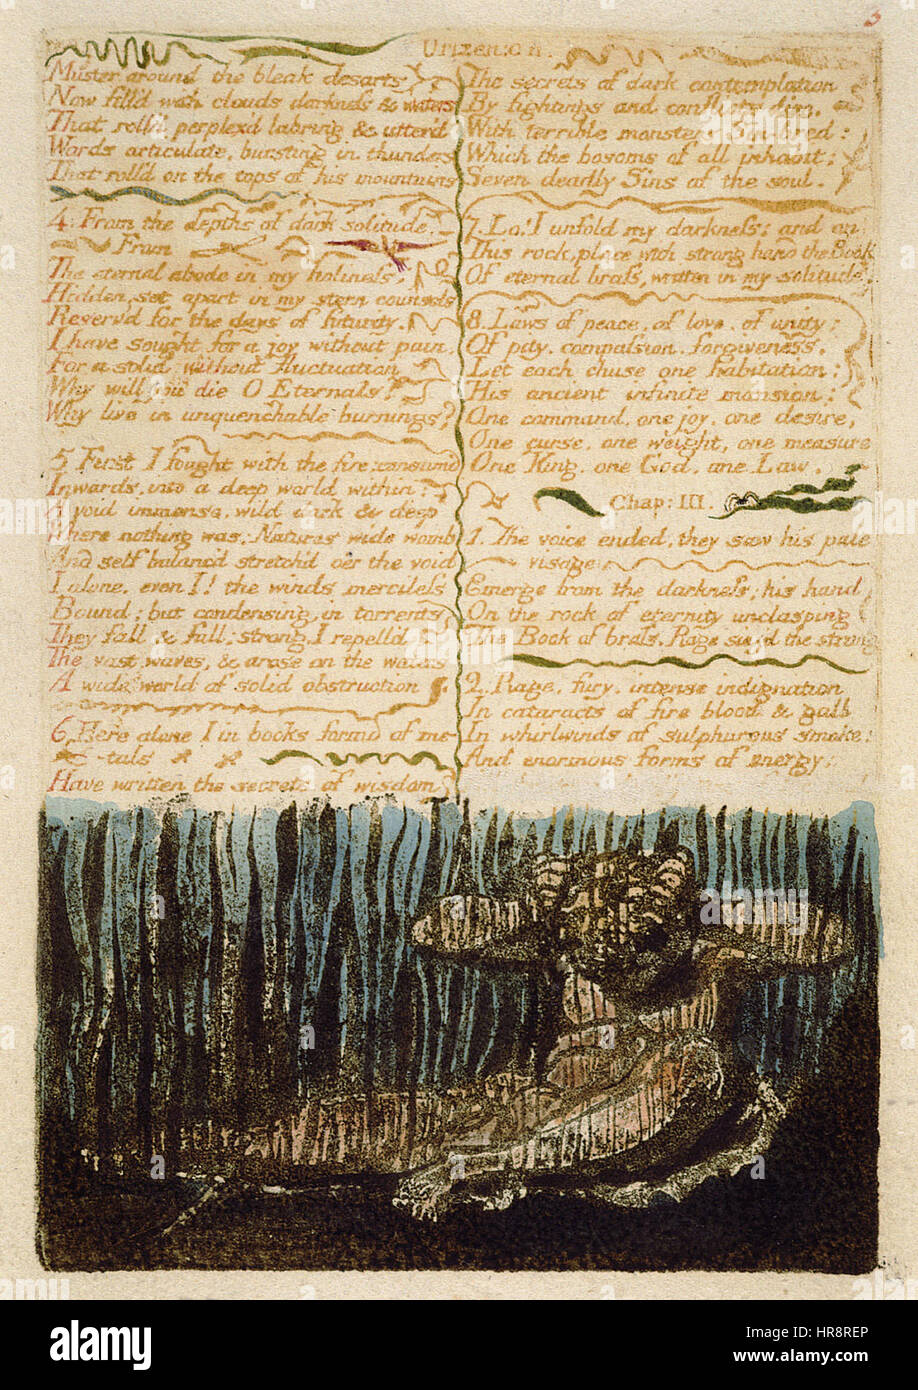 5
Urizen: C II.
Muster around the bleak desarts
Now fill'd with clouds, darkness & waters
That roll'd perplex'd labring & utter'd
Words articulate, bursting in thunders
That roll'd on the tops of his mountains
4: From the depths of dark solitude.
From
The eternal abode in my holiness,
Hidden, set apart in my stern counsels
Reserv'd for the days of futurity,
I have sought for a joy without pain,
For a solid without fluctuation
Why will you die O Eternals?
Why live in unquenchable burnings?
5 First I fought with the fire; consum'd
Inwards, into a deep world within:
A void immense, wild dark & deep,
Where nothing was; Natures wide womb
And self balanc'd stretch'd o'er the void
I alone, even I! the winds merciless
Bound; but condensing, in torrents
They fall & fall; strong, I repell'd
The vast waves, & arose on the waters
A wide world of solid obstruction
6. Here alone I in books formd of me-
-tals
Have written the secrets of wisdom
The secrets of dark contemplation
By fightings and conflicts dire,
With terrible monsters Sin-bred:
Which the bosoms of all inhabit;
Seven deadly Sins of the soul.
7. Lo! I unfold my darkness: and on
This rock, place with strong hand the Book
Of eternal brass, written in my solitude.
8. Laws of peace, of love, of unity:
Of pity, compassion, forgiveness.
Let each chuse one habitation:
His ancient infinite mansion:
One command, one joy, one desire,
One curse, one weight, one measure
One King, one God, one Law.
Chap: III.
1. The voice ended, they saw his pale
visage
Emerge from the darkness; his hand
On the rock of eternity unclasping
The Book of brass. Rage siez'd the strong
2. Rage, fury, intense indignation
In cataracts of fire blood & gall
In whirlwinds of sulphurous smoke:
And enormous forms of energy;
a
alamy
alamy
Image ID: HR8REP
www.alamy.com